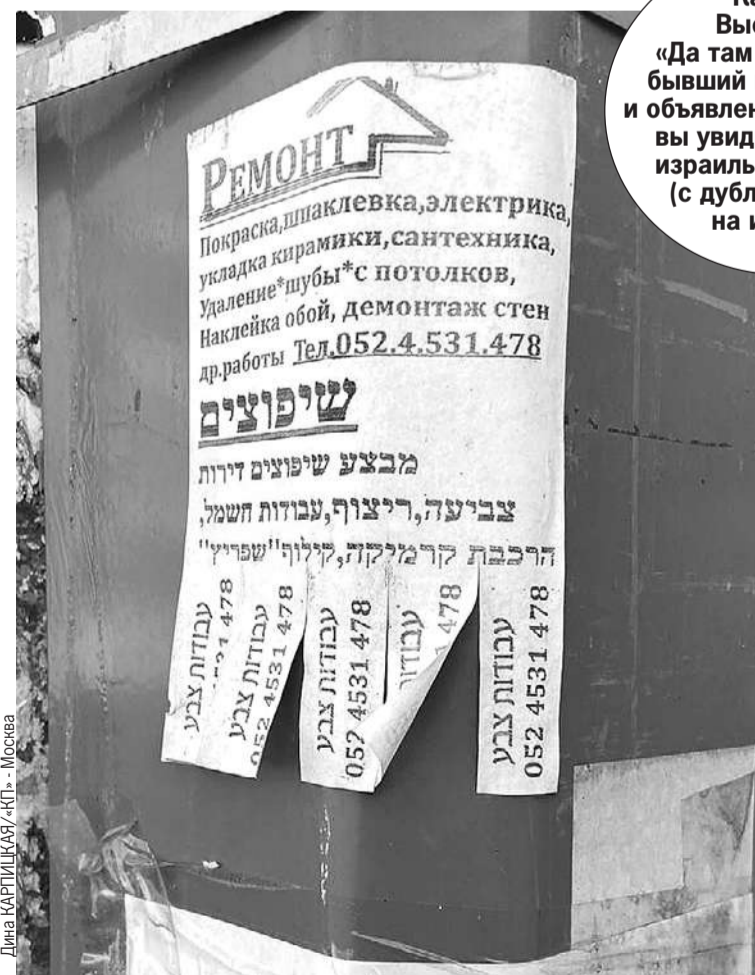 Ка
Выс
«Да там
бывший
и объявлен
вы увид
израиль
(с дубл
на и
РЕМОНТ
Покраска,шпаклевка,электрика,
укладка кирамики,сантехника,
Удаление*шубы*с потолков,
Наклейка обой, демонтаж стен
др.работы Тел.052.4.531.478
שיפוצים
מבצע שיפוצים דירות
צביעה,ריצוף,עבודות חשמל,
הרכבת קרמיקה,קילוף"שפריץ"
עבודות צבע
531 478
עבודות צבע
052 4531 478
עבודות צבע
052 4531 478
עבודות
478
עבודות צבע
052 4531 478
Дина КАРПИЦКАЯ/«КП» - Москва